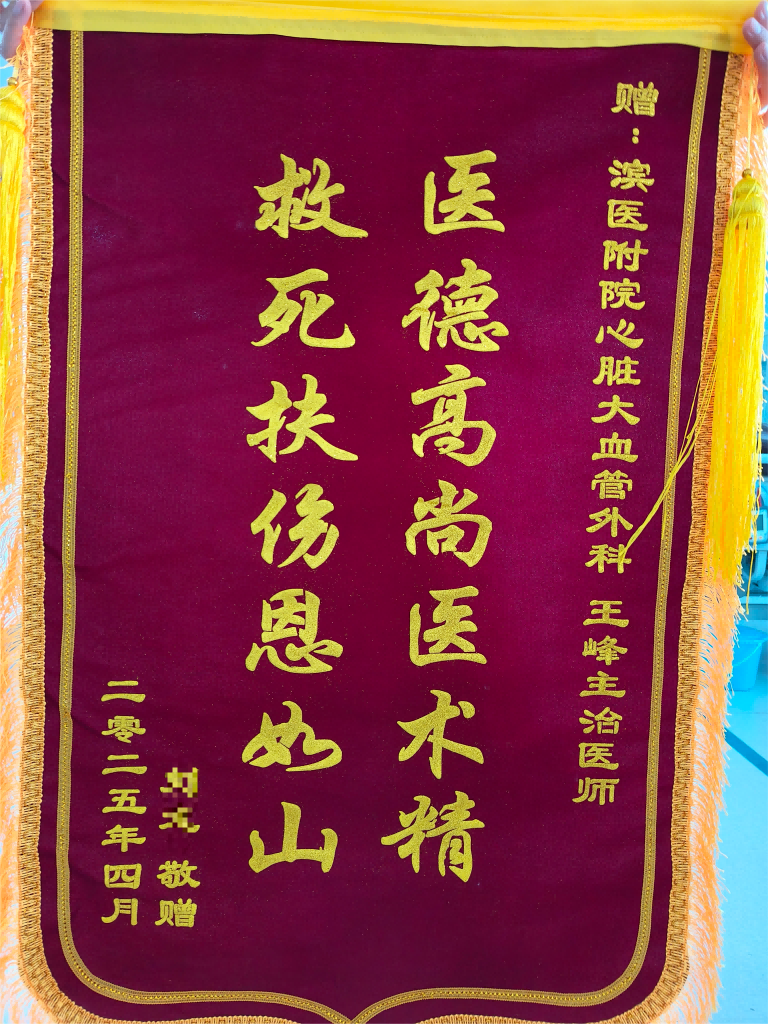 赠：滨医附院心脏大血管外科 王峰主治医师
医德高尚医术精
救死扶伤恩如山
敬赠
二零二五年四月